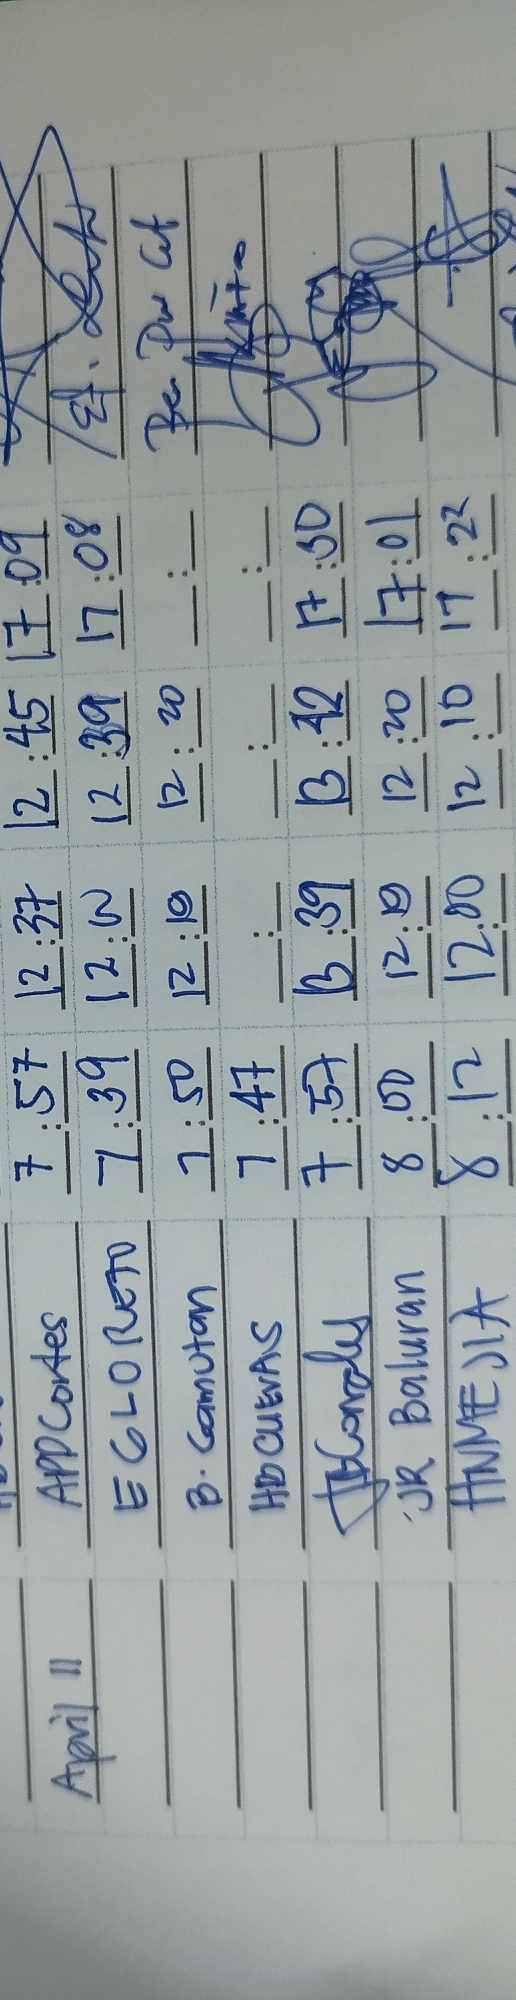 APPCortes 7:57 12:37 12:45 17:09
April 11 EGLORETO 7:39 12:W 12:39 17:08
B. Camutan 7:50 12:19 12:20 __:__
HDCUEVAS 7:47 __:__ __:__ __:__
7:57 13:39 13:42 17:30
JR Baluran 8:00 12:19 12:20 17:01
HNMEJIA 8:12 12:00 12:10 17:22